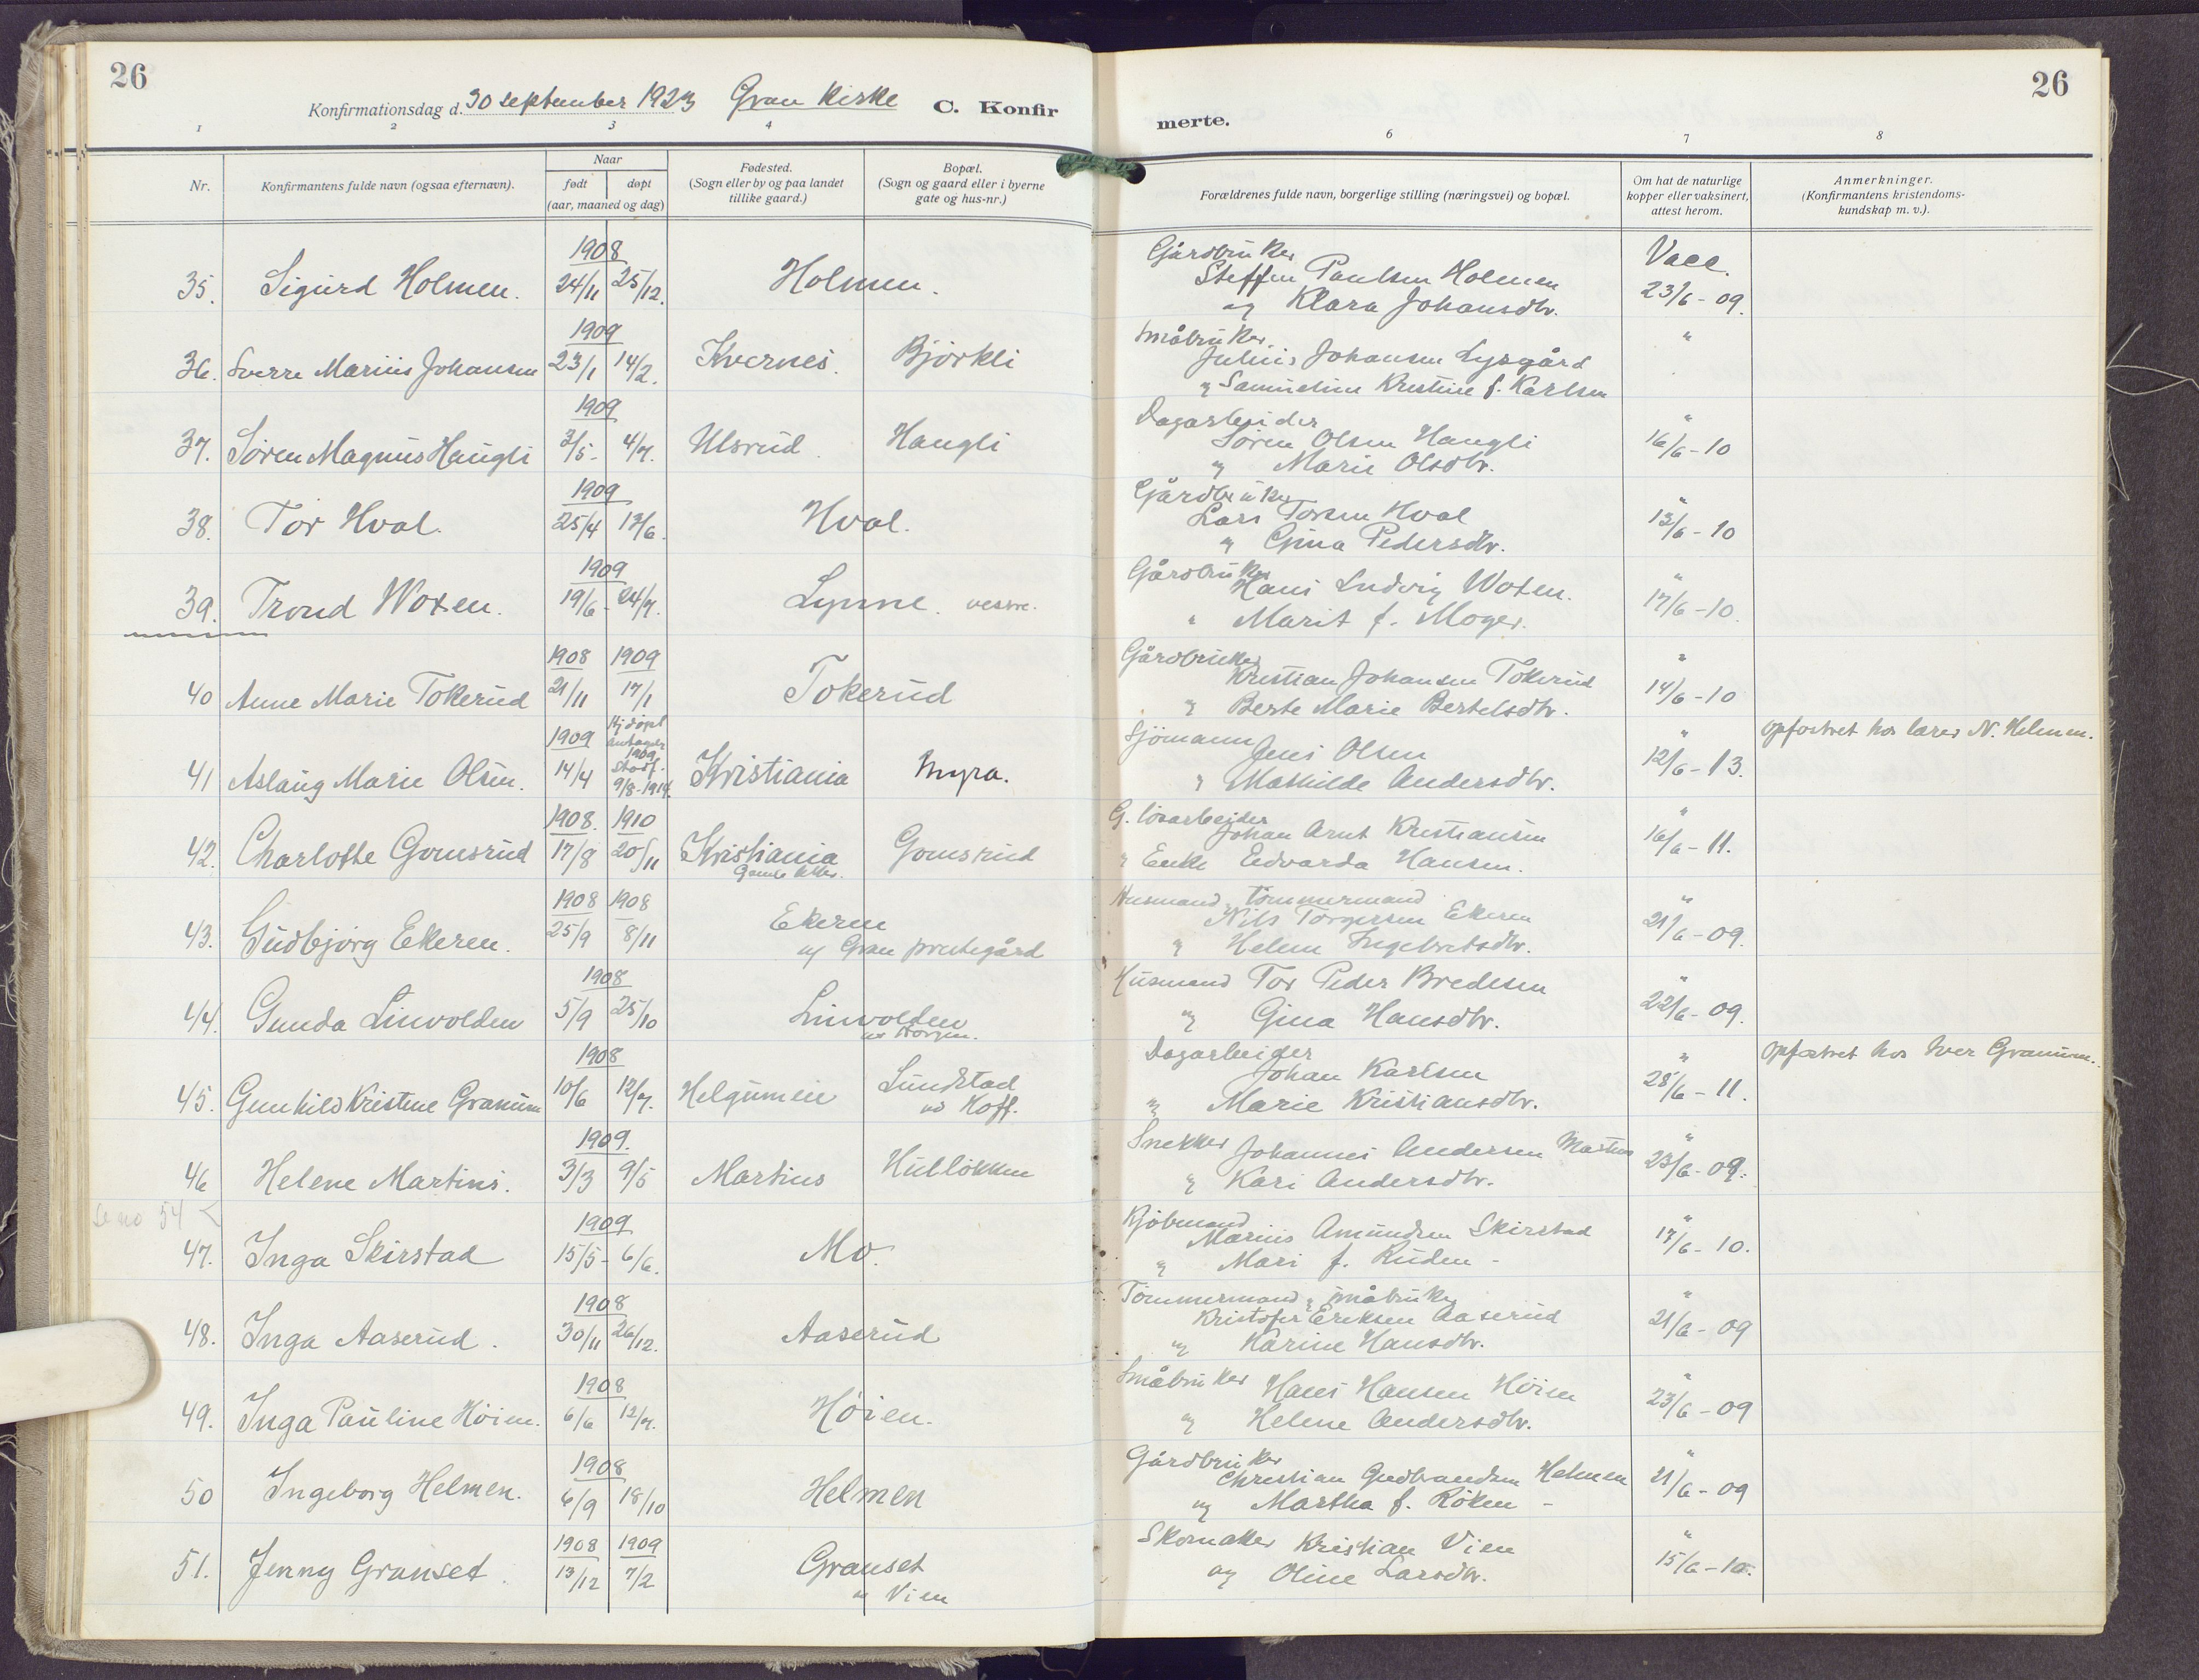 26
Konfirmationsdag d. 30 september 1923 Gran kirke C. Konfir
1 2 3 4
Nr.
Konfirmantens fulde navn (ogsaa efternavn).
Naar
født døpt
(aar, maaned og dag)
Fødested.
(Sogn eller by og paa landet
tillike gaard.)
Bopæl.
(Sogn og gaard eller i byerne
gate og hus-nr.)
1908
35. Sigurd Holmen. 24/11 25/12. Holmen.
1909
36. Sverre Marius Johansen 23/1 14/2. Kvernes. Bjørkli
1909
37. Søren Magnus Haugli 3/5- 4/7. Ulsrud. Haugli
1909
38. Tor Hval. 25/4 13/6. Hval.
1909
39. Trond Woxen. 19/6- 24/7. Lynne. vestre.
1908 1909
40 Anne Marie Tokerud 21/11 17/1 Tokerud
Hj døpt
1909
1909
41 Aslaug Marie Olsen. 14/4 Stadf. 9/8-1914. Kristiania Myra.
1908. 1910
42. Charlotte Gomsrud 17/8 20/11 Kristiania Gomsrud
Gamle Aker.
1908 1908
43. Gudbjørg Ekeren. 25/9 8/11 Ekeren
u/ Gran prestegård
1908
44. Gunda Linvolden 5/9 25/10 Linvolden
1908
45. Gunhild Kristine Granum 10/6 12/7. Helgumeie Lundstad
Hoff.
1909.
46 Helene Martins. 3/3 9/5 Martins Hulløkken
Se no 54 <
1909
47. Inga Skirstad 15/5- 6/6. Mo.
1908
48. Inga Aaserud. 30/11 26/12. Aaserud
1908
49. Inga Pauline Høien. 6/6 12/7. Høien.
1908
50 Ingeborg Helmen. 6/9 18/10 Helmen
1908 1909
51. Jenny Granset. 13/12 7/2 Granset
u Vien
26
merte.
6 7 8
Forældrenes fulde navn, borgerlige stilling (næringsvei) og bopæl.
Om hat de naturlige
kopper eller vaksinert,
attest herom.
Anmerkninger.
(Konfirmantens kristendoms-
kundskap m. v.).
Gårdbruker Vacc.
Steffen Paulsen Holmen
og Klara Johansdtr. 23/6-09.
Småbruker "
Julius Johansen Lysgård
og Samueline Kristine f. Karlsen
Dagarbeider "
Søren Olsen Haugli 16/6-10
og Marie Olsdtr.
Gårdbruker "
Lars Torsen Hval 13/6-10
og Gina Pedersdtr.
Gårdbruker "
Hans Ludvig Woxen. 17/6-10.
" Marit f. Moger.
Gårdbruker "
Kristian Johansen Tokerud 14/6-10
og Berte Marie Bertelsdtr.
Sjømann " opfostret hos lærer N. Helmen.
Jens Olsen 12/6-13.
og Mathilde Andersdtr.
G. løsarbeider "
Johan Arnt Kristiansen 16/6-11.
og Enke Edvarda Hansen.
Husmand, tømmermand "
Nils Torgersen Ekeren 21/6-09.
og Helene Ingebretsdtr.
Husmand Tor Peder Bredesen "
og Gina Hansdtr. 22/6-09.
Dagarbeider " opfostret hos Iver Granum.
Johan Karlsen 28/6-11.
og Marie Kristiansdtr.
Snekker Johannes Andersen Martins "
og Kari Andersdtr. 23/6-09.
Kjøbmand "
Marius Amundsen Skirstad 17/6-10.
og Mari f. Ruden -
Tømmermand og småbruker "
Kristofer Eriksen Aaserud 21/6-09
og Karine Hansdtr.
Småbruker Hans Hansen Høien "
og Helene Andersdtr. 23/6-09
Gårdbruker "
Christian Gudbrandsen Helmen 21/6-09
og Martha f. Røken -
Skomaker Kristian Vien "
og Oline Larsdtr. 15/6-10.